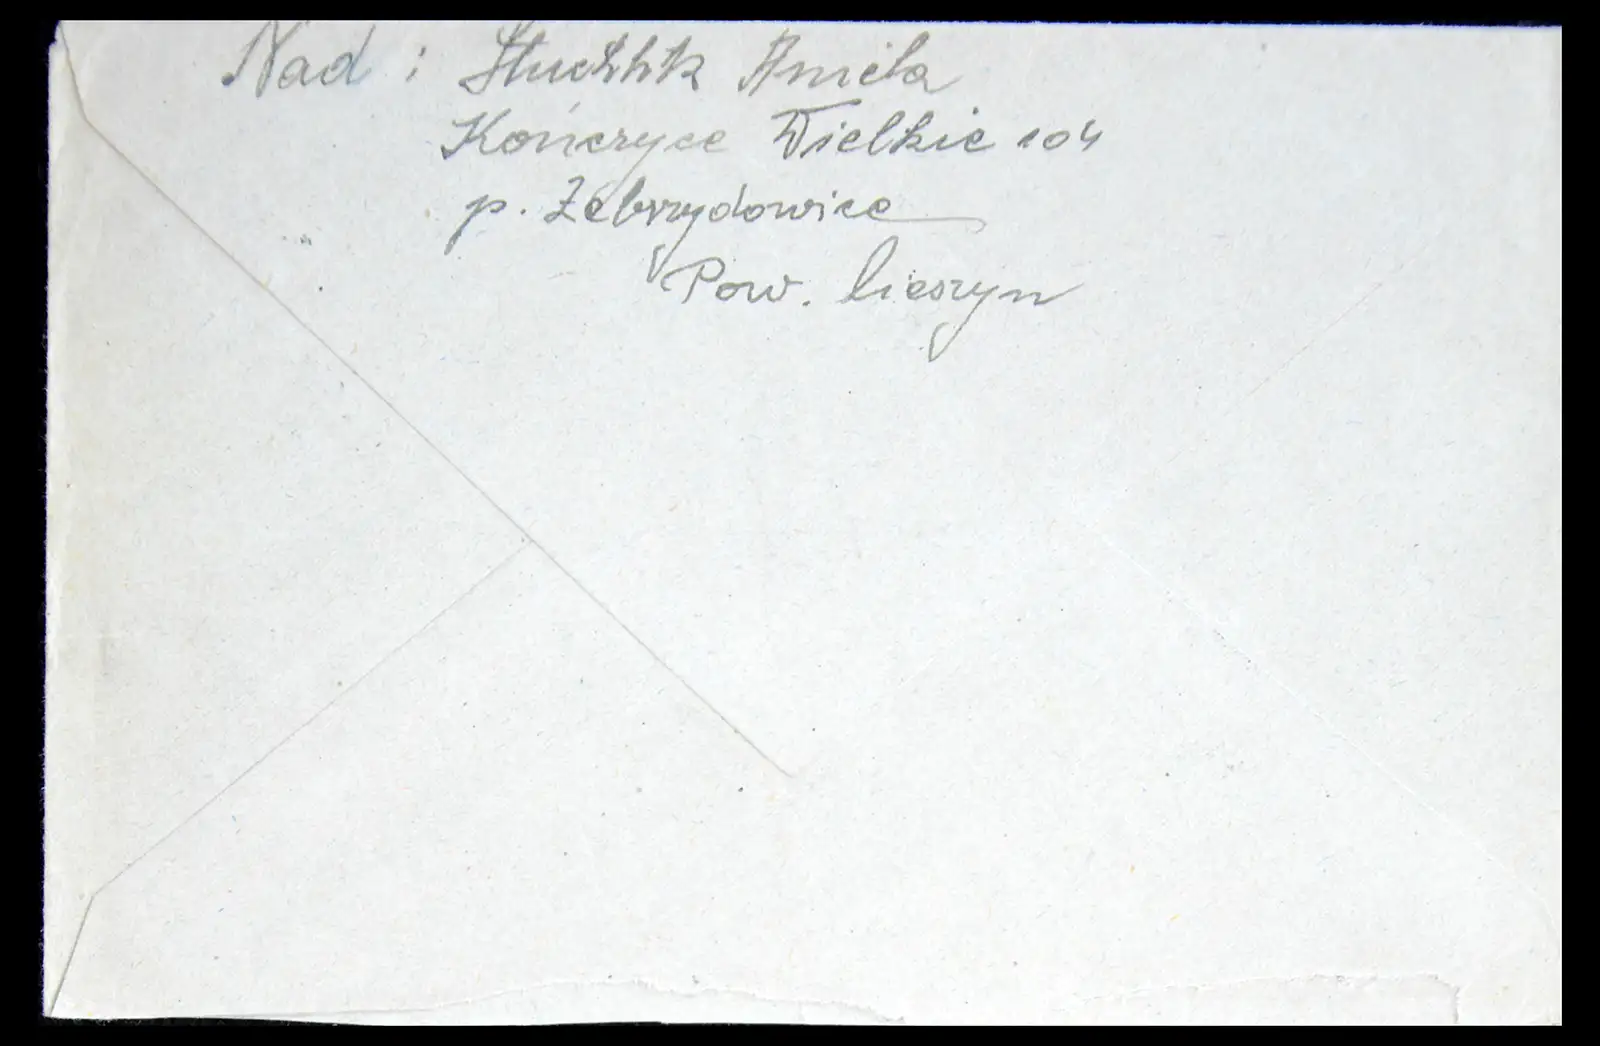 Nad: Stuchlik Aniela
Kończyce Wielkie 104
p. Zebrzydowice
Pow. Cieszyn